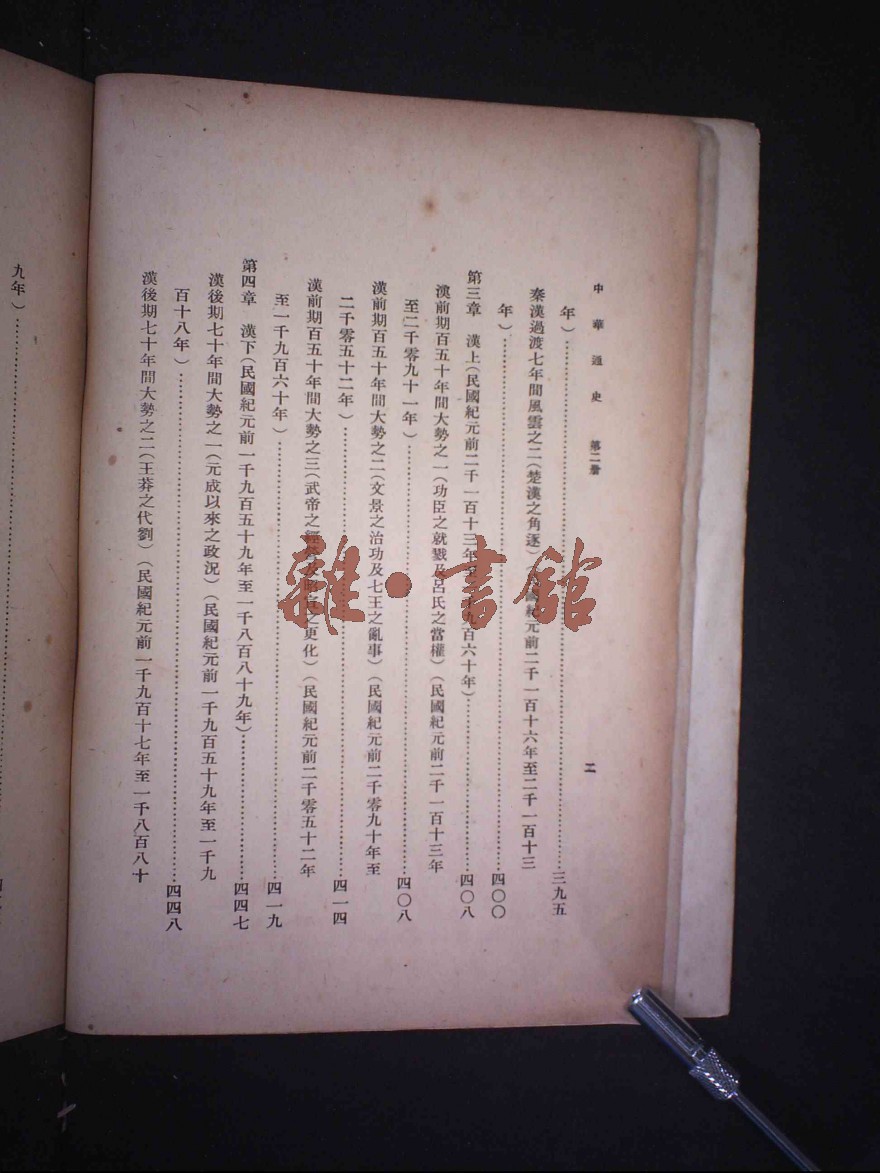 中華通史 第二册
二
年）……三九五
秦漢過渡七年間風雲之二（楚漢之角逐）（民國紀元前二千一百十六年至二千一百十三
年）……四〇〇
第三章 漢上（民國紀元前二千一百十三年至一千九百六十年）……四〇八
漢前期百五十年間大勢之一（功臣之就戮及呂氏之當權）（民國紀元前二千一百十三年
至二千零九十一年）……四〇八
漢前期百五十年間大勢之二（文景之治功及七王之亂事）（民國紀元前二千零九十年至
二千零五十二年）……四一四
漢前期百五十年間大勢之三（武帝之經營及昭宣之更化）（民國紀元前二千零五十二年
至一千九百六十年）……四一九
第四章 漢下（民國紀元前一千九百五十九年至一千八百八十九年）……四四七
漢後期七十年間大勢之一（元成以來之政況）（民國紀元前一千九百五十九年至一千九
百十八年）……四四八
漢後期七十年間大勢之二（王莽之代劉）（民國紀元前一千九百十七年至一千八百八十
九年）……
雜·書館